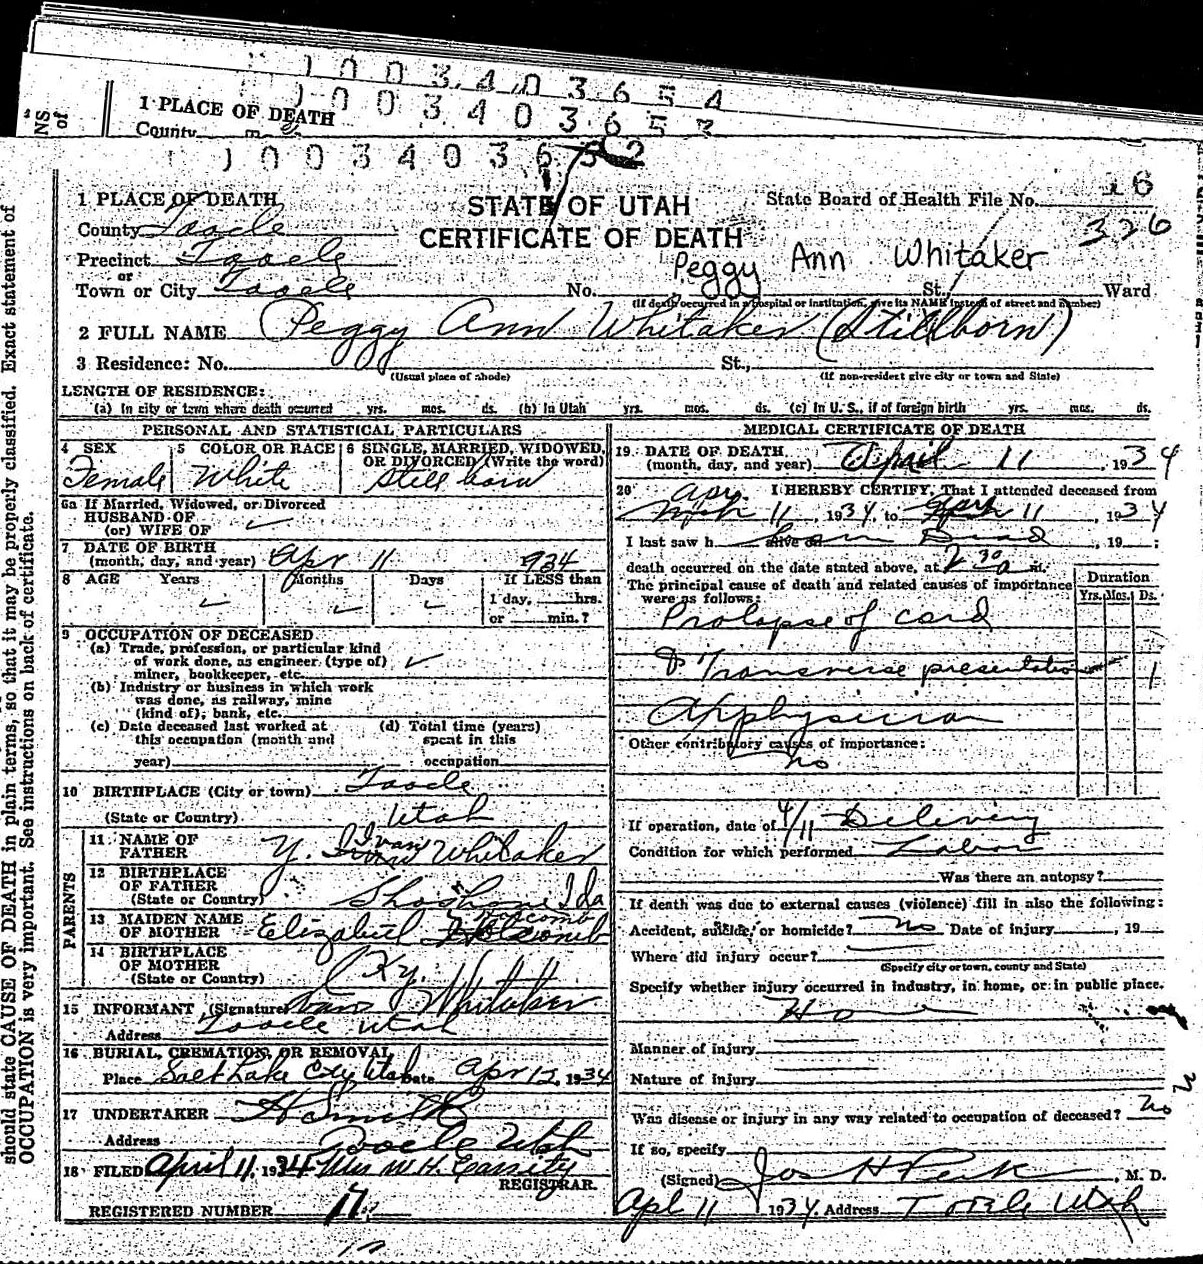 1003403654
1003403653
1 PLACE OF DEATH
County
1003403652
1 PLACE OF DEATH
County Tooele
Precinct Tooele
or
Town or City Tooele
STATE OF UTAH
CERTIFICATE OF DEATH
State Board of Health File No. 26
326
Peggy Ann Whitaker
No. St., Ward
(If death occurred in a hospital or institution, give its NAME instead of street and number)
2 FULL NAME Peggy Ann Whitaker (Stillborn)
3 Residence: No. St.,
(Usual place of abode) (If non-resident give city or town and State)
LENGTH OF RESIDENCE:
(a) In city or town where death occurred yrs. mos. ds. (b) In Utah yrs. mos. ds. (c) In U. S., if of foreign birth yrs. mos. ds.
PERSONAL AND STATISTICAL PARTICULARS
4 SEX 5 COLOR OR RACE 6 SINGLE, MARRIED, WIDOWED,
OR DIVORCED (Write the word)
Female White Still born
6a If Married, Widowed, or Divorced
HUSBAND OF
(or) WIFE OF
7 DATE OF BIRTH
(month, day, and year) Apr 11 934
8 AGE Years Months Days If LESS than
1 day, hrs.
or min.?
9 OCCUPATION OF DECEASED
(a) Trade, profession, or particular kind
of work done, as engineer (type of)
miner, bookkeeper, etc.
(b) Industry or business in which work
was done, as railway, mine
(kind of), bank, etc.
(c) Date deceased last worked at (d) Total time (years)
this occupation (month and spent in this
year) occupation
10 BIRTHPLACE (City or town) Tooele
(State or Country) Utah
PARENTS
11 NAME OF
FATHER Y. Ivan Whitaker
12 BIRTHPLACE
OF FATHER
(State or Country) Shoshone Ida
13 MAIDEN NAME
OF MOTHER Elizabeth Holcomb
14 BIRTHPLACE
OF MOTHER
(State or Country) Ky.
15 INFORMANT (Signature) Ivan Whitaker
Address Tooele Utah
16 BURIAL, CREMATION, OR REMOVAL
Place Salt Lake City Utah Date Apr 12, 1934
17 UNDERTAKER
Address Tooele Utah
18 FILED April 11, 1934 Mrs W. H. Cassity
REGISTRAR.
REGISTERED NUMBER 17
MEDICAL CERTIFICATE OF DEATH
19 DATE OF DEATH
(month, day, and year) April 11 1934
20 Apr. I HEREBY CERTIFY, That I attended deceased from
11, 1934, to April 11, 1934
I last saw h alive on Born Dead, 19 ;
death occurred on the date stated above, at 2 30 a m.
The principal cause of death and related causes of importance
were as follows:
Duration
Yrs. Mos. Ds.
Prolapse of cord
& Transverse presentation 1
Other contributory causes of importance:
no
If operation, date of 4/11 Delivery
Condition for which performed Labor
Was there an autopsy?
If death was due to external causes (violence) fill in also the following:
Accident, suicide, or homicide? no Date of injury , 19
Where did injury occur?
(Specify city or town, county and State)
Specify whether injury occurred in industry, in home, or in public place.
Manner of injury
Nature of injury
Was disease or injury in any way related to occupation of deceased? No
If so, specify
(Signed) Jos H Peck, M. D.
Apl 11 1934. Address Tooele Utah
should state CAUSE OF DEATH in plain terms, so that it may be properly classified. Exact statement of
OCCUPATION is very important. See instructions on back of certificate.